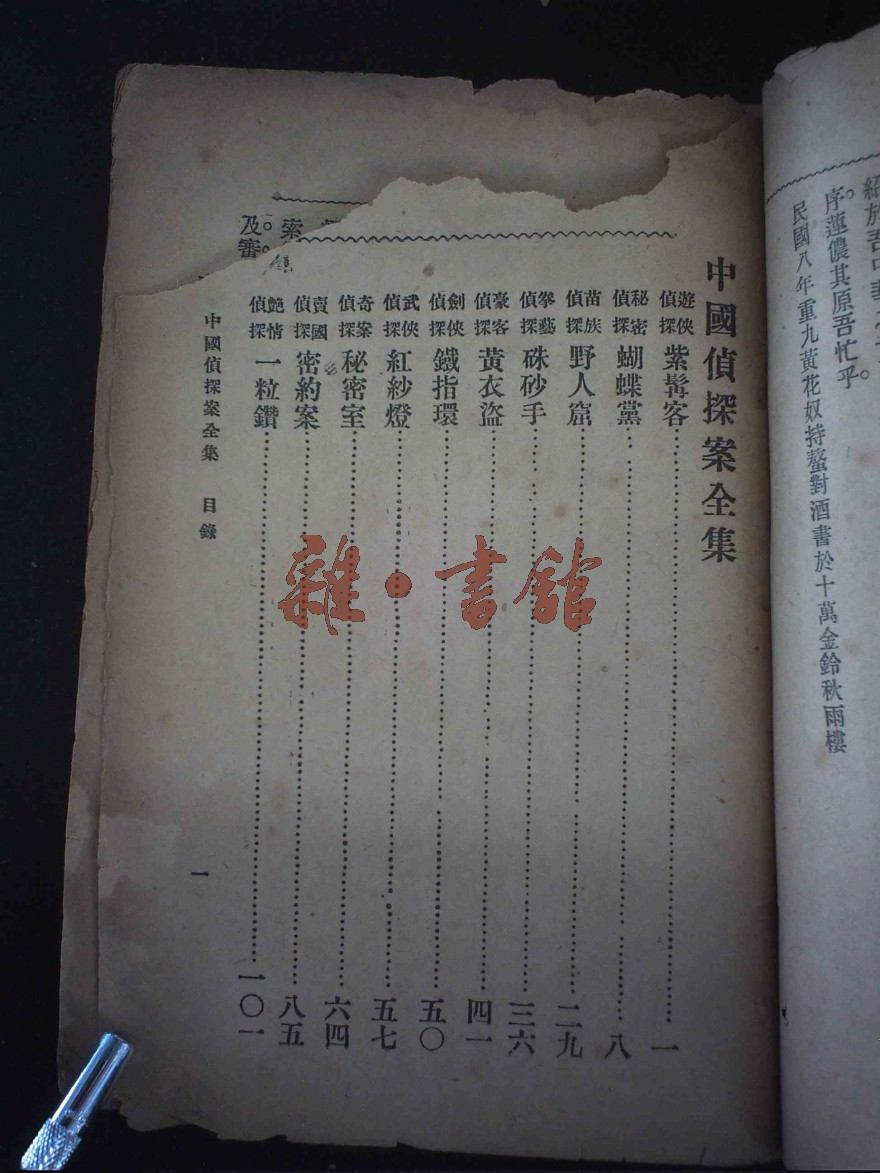 序。蓮儂其原吾忙乎。
民國八年重九黃花奴持螯對酒書於十萬金鈴秋雨樓
中國偵探案全集
遊俠偵探 紫髯客……一
秘密偵探 蝴蝶黨……八
苗族偵探 野人窟……二九
拳藝偵探 硃砂手……三六
豪客偵探 黃衣盜……四一
劍俠偵探 鐵指環……五〇
武俠偵探 紅紗燈……五七
奇案偵探 秘密室……六四
賣國偵探 密約案……八五
艶情偵探 一粒鑽……一〇一
中國偵探案全集 目錄
一
索
及審。
雜·書館